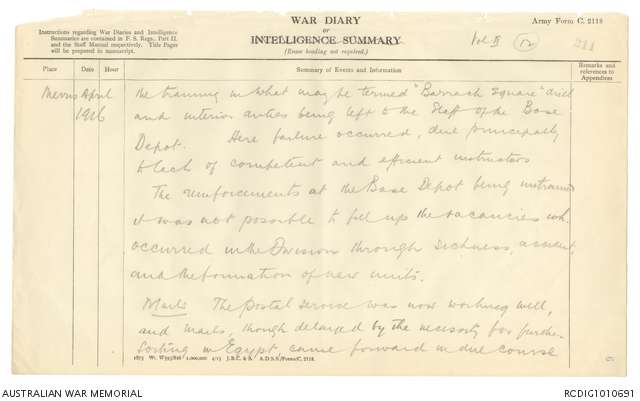 WAR DIARY
or
INTELLIGENCE SUMMARY
(Erase heading not required.)
Army Form C. 2118
Instructions regarding War Diaries and Intelligence
Summaries are contained in F. S. Regs., Part II.
and the Staff Manual respectively. Title Pages
will be prepared in manuscript.
Vol II
12
211
Place
Date
Hour
Summary of Events and Information
Remarks and
references to
Appendices
April
1916
the training in what may be termed "Barrack Square" drill
and interior duties being left to the Staff of the Base
Depot. Here failure occurred, due principally
to lack of competent and efficient instructors
The reinforcements at the Base Depot being untrained
it was not possible to fill up the vacancies wh.
occurred in the Division through sickness, accident,
and the formation of new units.
Mails The postal service was now working well,
and mails, though delayed by the necessity for further
sorting in Egypt, came forward in due course
1875 Wt. W593/826 1,000,000 4/15 J.B.C. & A. A.D.S.S./Forms/C. 2118.
AUSTRALIAN WAR MEMORIAL
RCDIG1010691